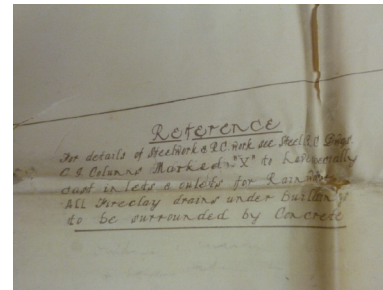 Reference
For details of Steelwork & R.C. work see Steel & R.C. Dwgs
C.I. Columns Marked "X" to have specially
cast inlets & outlets for Rainwater
All Fireclay drains under buildings
to be surrounded by Concrete